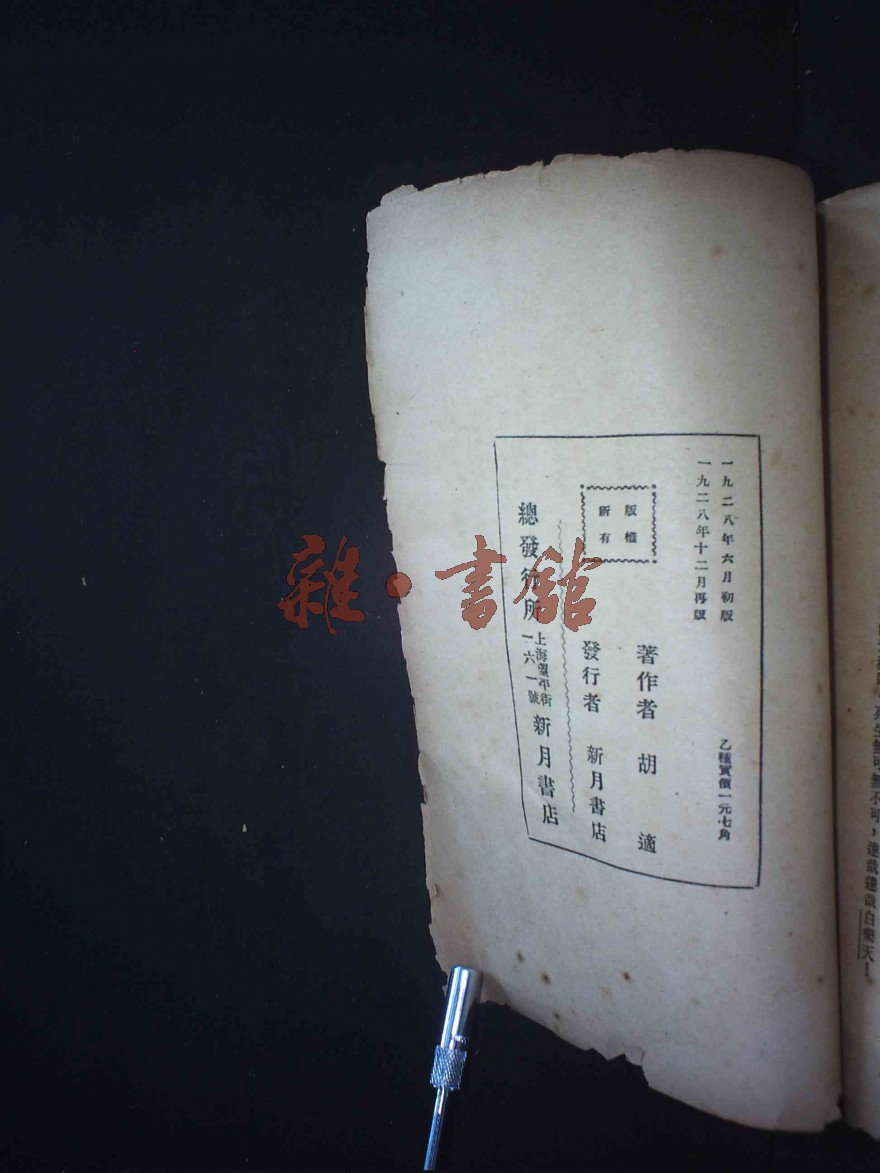 死生無可無不可，達哉達哉白樂天！
一九二八年六月初版
一九二八年十二月再版
乙種實價一元七角
版權
所有
著作者 胡適
發行者 新月書店
總發行所 上海望平街一六一號 新月書店
雜·書館